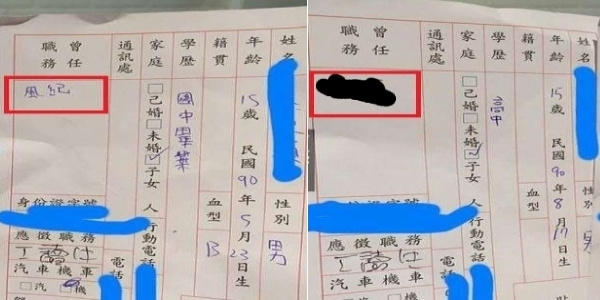 姓名
性別 男
年齡 15歲 民國90年5月23日生
籍貫
血型 B
學歷 國中畢業
家庭 □己婚□未婚☑子女 人
行動電話
通訊處
電話
曾任職務
風紀
身份證字號
應徵職務
汽車 機車
姓名
性別 男
年齡 15歲 民國90年8月17日生
籍貫
血型
學歷 高中
家庭 □己婚□未婚☑子女 人
行動電話
通訊處
電話
曾任職務
應徵職務
汽車 機車